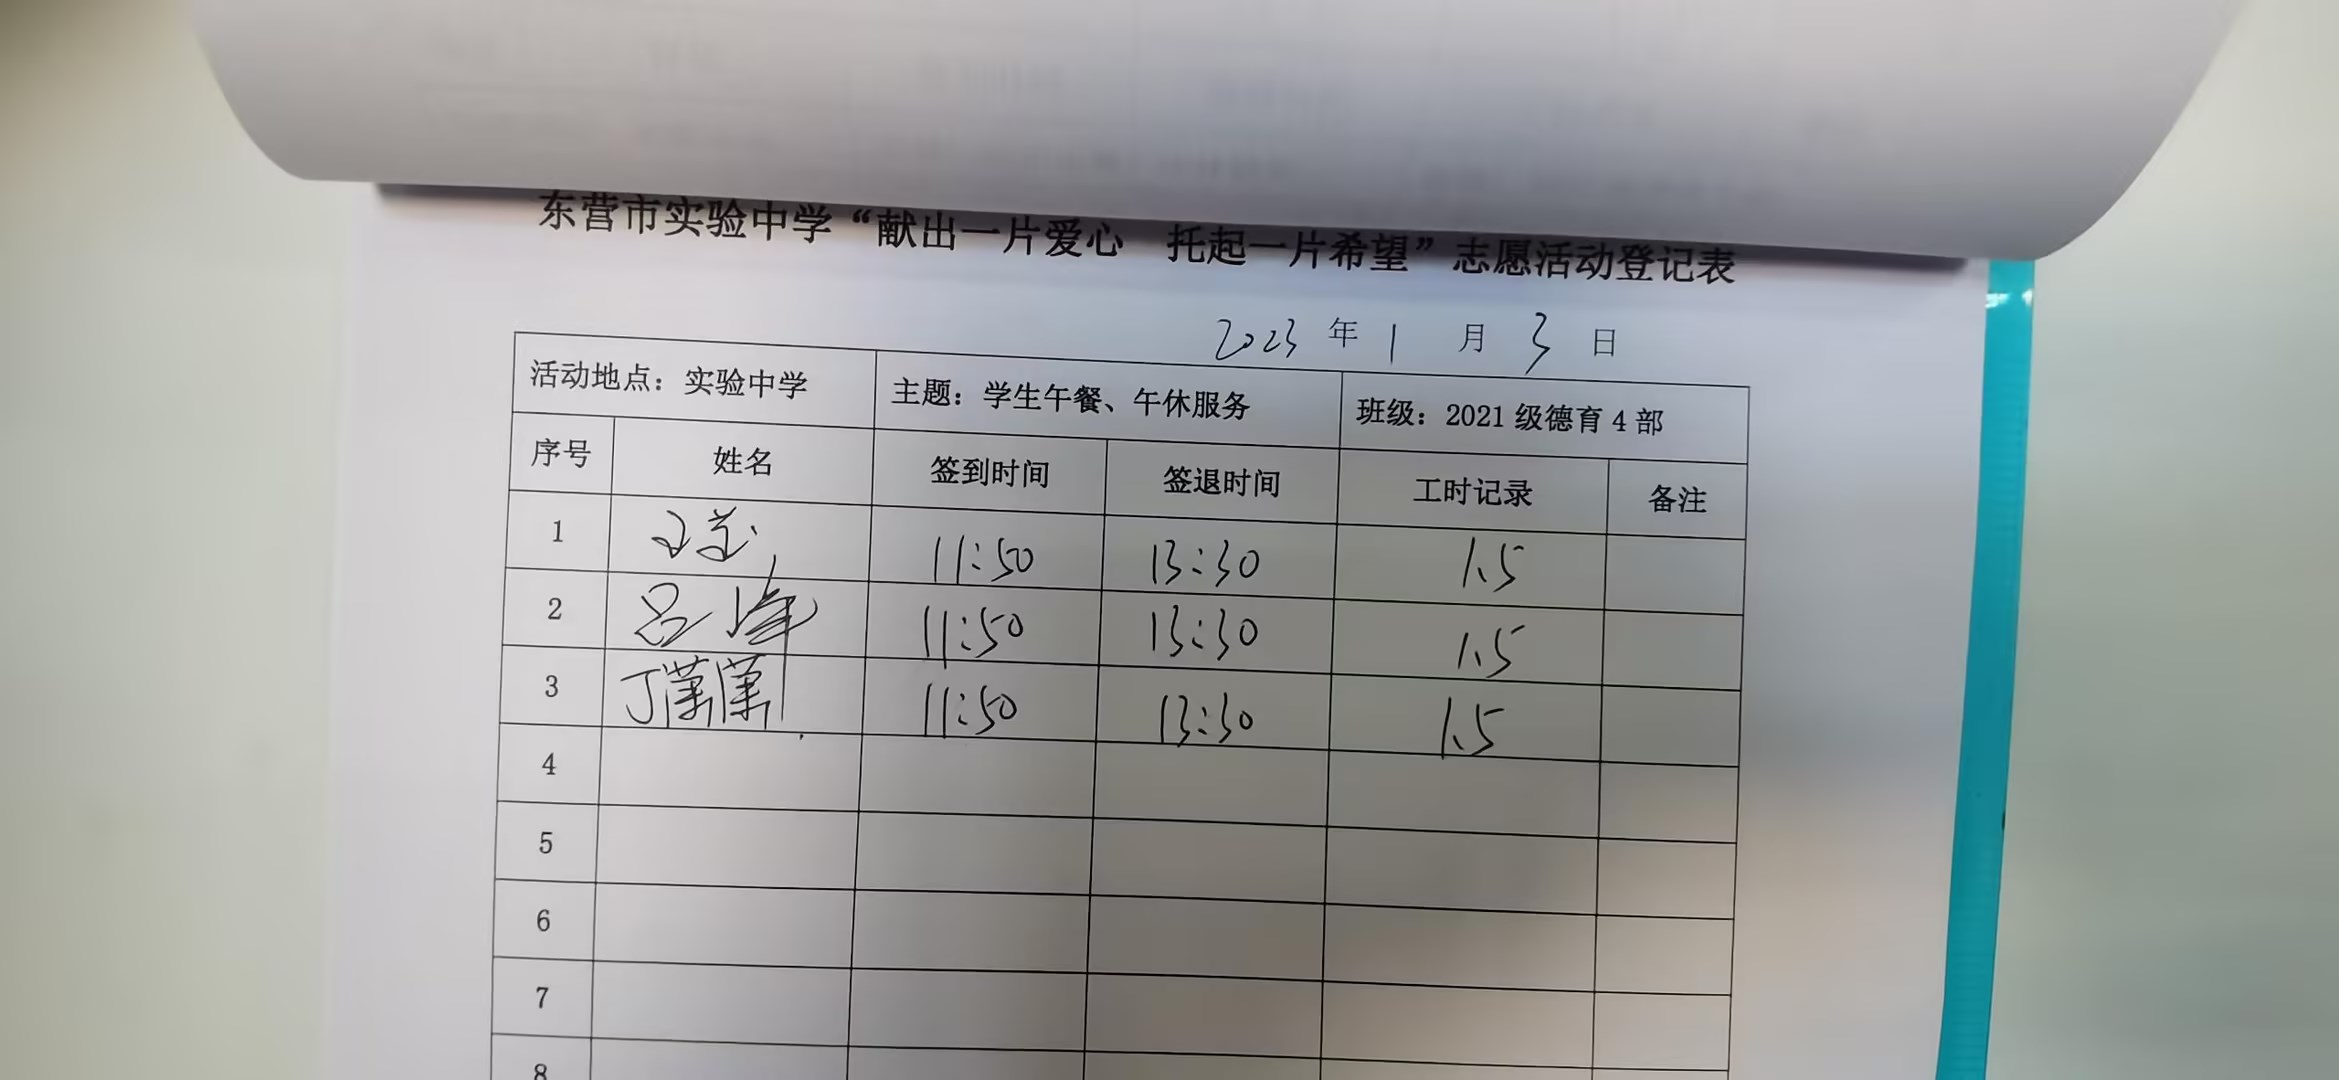 东营市实验中学“献出一片爱心 托起一片希望”志愿活动登记表
2023 年 1 月 3 日
活动地点：实验中学 主题：学生午餐、午休服务 班级：2021 级德育 4 部
序号 姓名 签到时间 签退时间 工时记录 备注
1 11:50 13:30 1.5
2 吕 11:50 13:30 1.5
3 丁潇潇 11:50 13:30 1.5
4
5
6
7
8